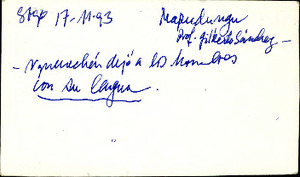 Stgo 17-11-93
Mapudungu
Prof. Gilberto Sánchez -
- Ngenechén dejó a los hombres
con su lengua.